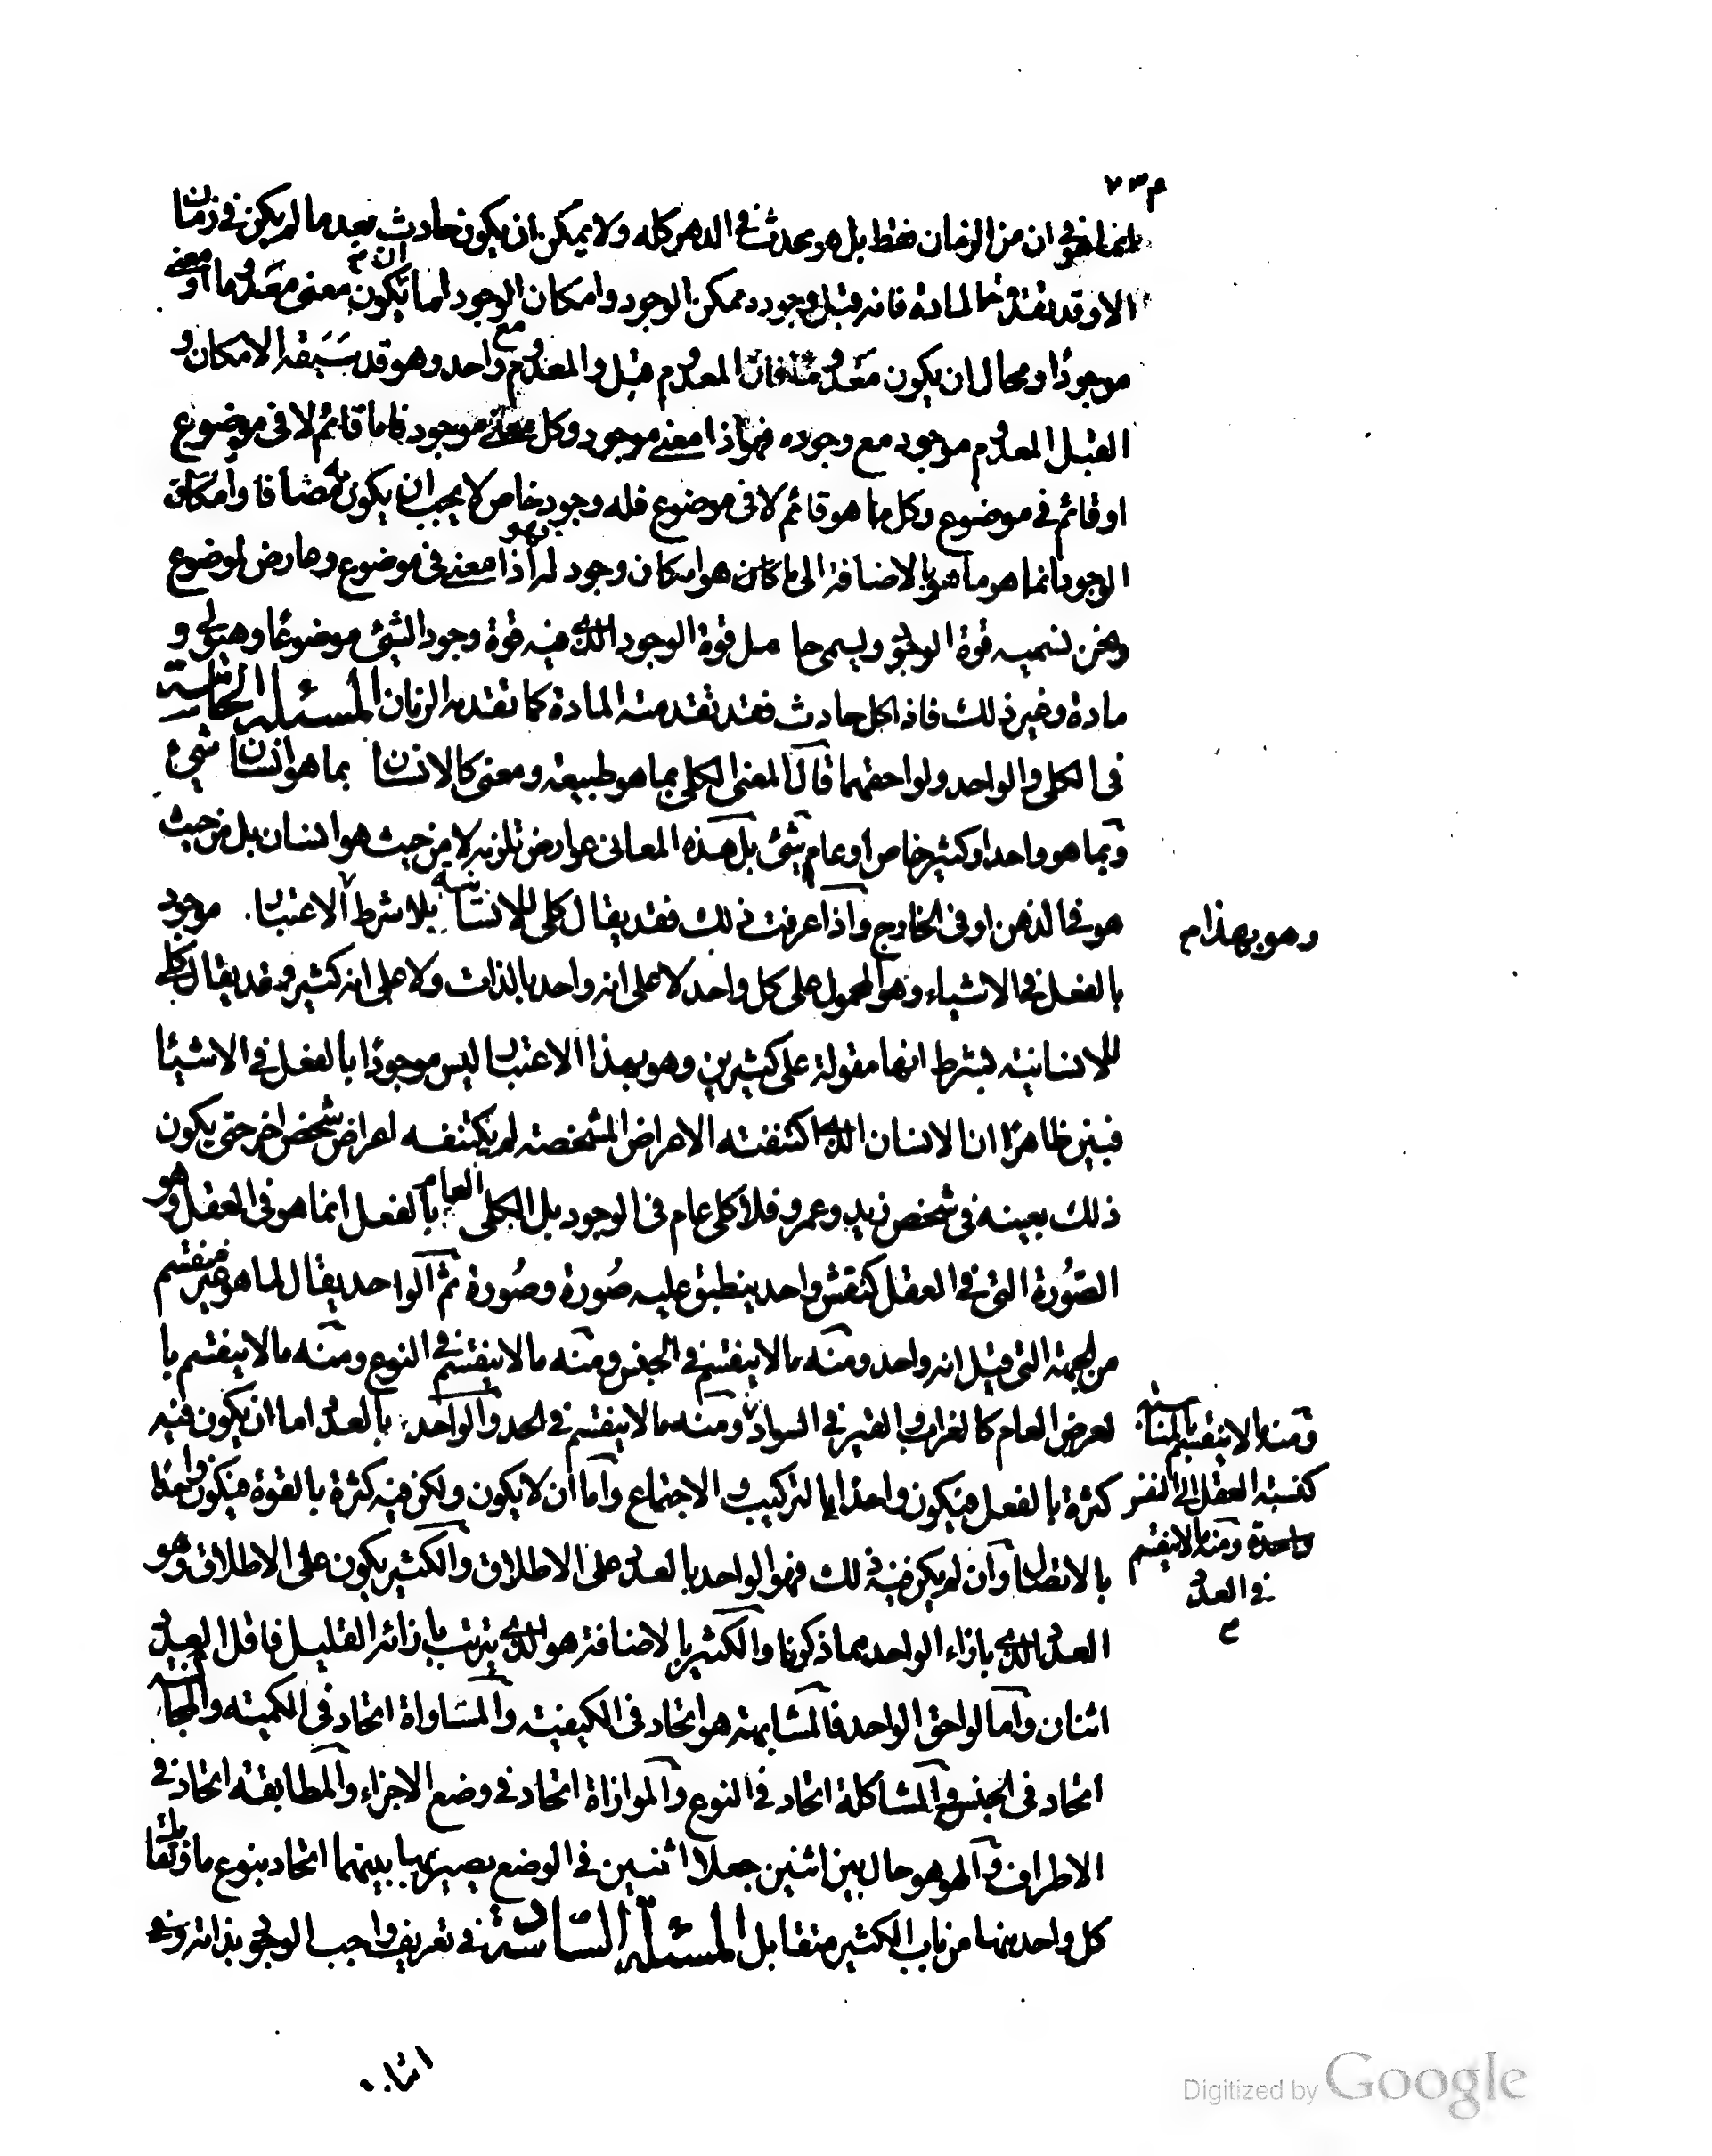 ٧٣٤
انما هو في ان من الزمان فقط بل هو محدث في الدهر كله ولا يمكن ان يكون حادث بعد ما لم يكن في زمان
الا وقد تقدمته المادة فانه قبل وجوده ممكن الوجود وامكان الوجود اما ان يكون معنى معدوما او معنى
موجودا ومحال ان يكون معدوما فان المعدوم قبل والمعدوم مع واحد وهو قد سبقه الامكان و
القبل المعدوم موجود مع وجوده فهو اذا معنى موجود وكل معنى موجود فاما قائم لا في موضوع
او قائم في موضوع وكل ما هو قائم لا في موضوع فله وجود خاص لا يجب ان يكون به مضافا وامكان
الوجود انما هو ما هو بالاضافة الى ما هو امكان وجود له فهو اذا معنى في موضوع وعارض لموضوع
ونحن نسميه قوة الوجود ويسمى حامل قوة الوجود الذي فيه قوة وجود الشئ موضوعا وهيولى و
مادة وغير ذلك فاذا كل حادث فقد تقدمته المادة كما تقدمه الزمان المسئلة الخامسة
في الكلى والواحد ولواحقهما قال المعنى الكلى بما هو طبيعة ومعنى كالانسان بما هو انسان شىء
وبما هو واحد او كثير خاص او عام شئ بل هذه المعانى عوارض تلزمه لا من حيث هو انسان بل من حيث
هو في الذهن او في الخارج واذا عرفت ذلك فقد يقال كلى للانسانية بلا شرط الاعتبار موجود
وهو بهذا م
بالفعل في الاشياء وهو المحمول على كل واحد لا على انه واحد بالذات ولا على انه كثير وقد يقال كلى
للانسانية بشرط انها مقولة على كثيرين وهو بهذا الاعتبار ليس موجودا بالفعل في الاشياء
فبين ظاهرا ان الانسان الذي اكتنفته الاعراض المشخصة لم يكتنفه اعراض شخص اخر حتى يكون
ذلك بعينه في شخص زيد وعمرو فلا كلى عام في الوجود بل الكلى العام بالفعل انما هو في العقل وهو
الصورة التى في العقل كنقش واحد ينطبق عليه صورة وصورة ثم الواحد يقال لما هو غير منقسم
من الجهة التى قيل انه واحد ومنه ما لا ينقسم في الجنس ومنه ما لا ينقسم في النوع ومنه ما لا ينقسم با
لعرض العام كالغراب والقير في السواد ومنه ما لا ينقسم في الحد والواحد بالعدد اما ان يكون فيه
ومنه ما لا ينقسم بالمناسبة
كنسبة العقل الى النفس
ومنه ما لا ينقسم
في العدد
كثرة بالفعل فيكون واحدا بالتركيب والاجتماع واما ان لا يكون ولكن فيه كثرة بالقوة فيكون واحدا
بالاتصال وان لم يكن فيه ذلك فهو الواحد بالعدد على الاطلاق والكثير يكون على الاطلاق وهو
العدد الذي بازاء الواحد مما ذكرنا والكثير بالاضافة هو الذي يترتب بازائه القليل فاقل العدد
اثنان واما لواحق الواحد فالمشابهة هو اتحاد في الكيفية والمساواة اتحاد في الكمية والمجانسة
اتحاد في الجنس والمشاكلة اتحاد في النوع والموازاة اتحاد في وضع الاجزاء والمطابقة اتحاد في
الاطراف والهو هو حال بين اثنين جعلا اثنين في الوضع يصير بها بينهما اتحاد بنوع ما ويقابل
كل واحد منها من باب الكثير متقابل المسئلة السادسة في تعريف واجب الوجود بذاته وفى
Digitized by Google